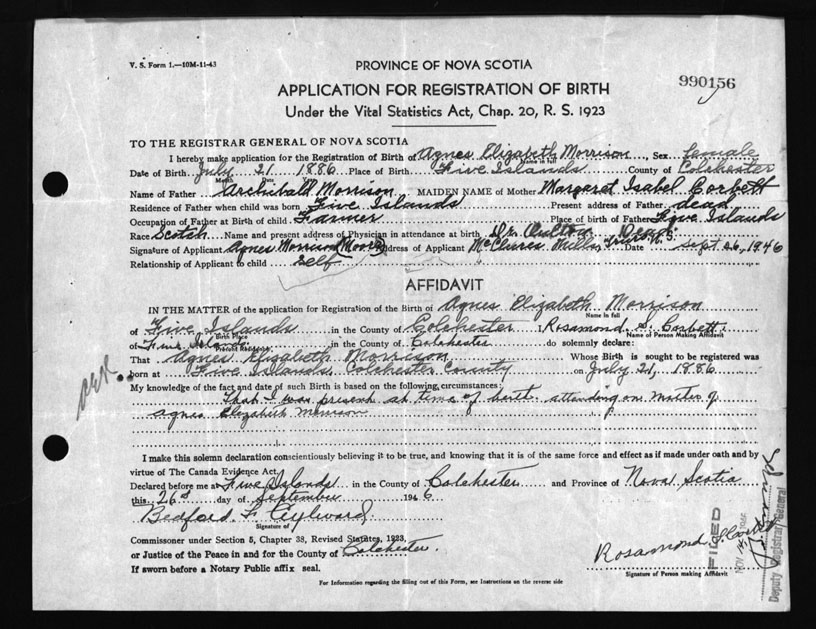 V. S. Form 1.—10M-11-43
PROVINCE OF NOVA SCOTIA
990156
APPLICATION FOR REGISTRATION OF BIRTH
Under the Vital Statistics Act, Chap. 20, R. S. 1923
TO THE REGISTRAR GENERAL OF NOVA SCOTIA
I hereby make application for the Registration of Birth of Agnes Elizabeth Morrison, Sex female
Name in full
Date of Birth July 21 1886 Place of Birth Five Islands County of Colchester
Month Date Year
Name of Father Archibald Morrison MAIDEN NAME of Mother Margaret Isabel Corbett
Residence of Father when child was born Five Islands Present address of Father dead
Occupation of Father at Birth of child Farmer Place of birth of Father Five Islands
Race Scotch Name and present address of Physician in attendance at birth Dr. Dead
Signature of Applicant Agnes Morrison Moore Address of Applicant McClures Mills, Truro N.S. Date Sept 26, 1946
Relationship of Applicant to child self
AFFIDAVIT
IN THE MATTER of the application for Registration of the Birth of Agnes Elizabeth Morrison
Name in full
of Five Islands in the County of Colchester I, Rosamond S. Corbett
Birth Place Name of Person Making Affidavit
of Five Islands in the County of Colchester do solemnly declare:
Present Residence
That Agnes Elizabeth Morrison Whose Birth is sought to be registered was
born at Five Islands Colchester County on July 21, 1886
My knowledge of the fact and date of such Birth is based on the following circumstances:
That I was present at time of birth attending on mother of
Agnes Elizabeth Morrison
I make this solemn declaration conscientiously believing it to be true, and knowing that it is of the same force and effect as if made under oath and by
virtue of The Canada Evidence Act.
Declared before me at Five Islands in the County of Colchester and Province of Nova Scotia
this 26th day of September 1946
Bedford F. Aylward
Signature of
Commissioner under Section 5, Chapter 38, Revised Statutes, 1923,
or Justice of the Peace in and for the County of Colchester.
If sworn before a Notary Public affix seal.
Rosamond S Corbett
Signature of Person making Affidavit
FILED
NOV
Deputy Registrar General
For Information regarding the filling out of this Form, see Instructions on the reverse side